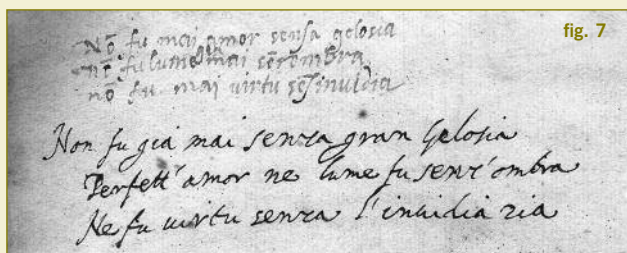 fig. 7
nō fu mai amor sensa gelosia
nē fu lume mai sēz ombra
nō fu mai uirtu sēz inuidia
Non fu gia mai senza gran Gelosia
Perfett' amor ne lume fu senz' ombra
Ne fu uirtu senza l'inuidia ria